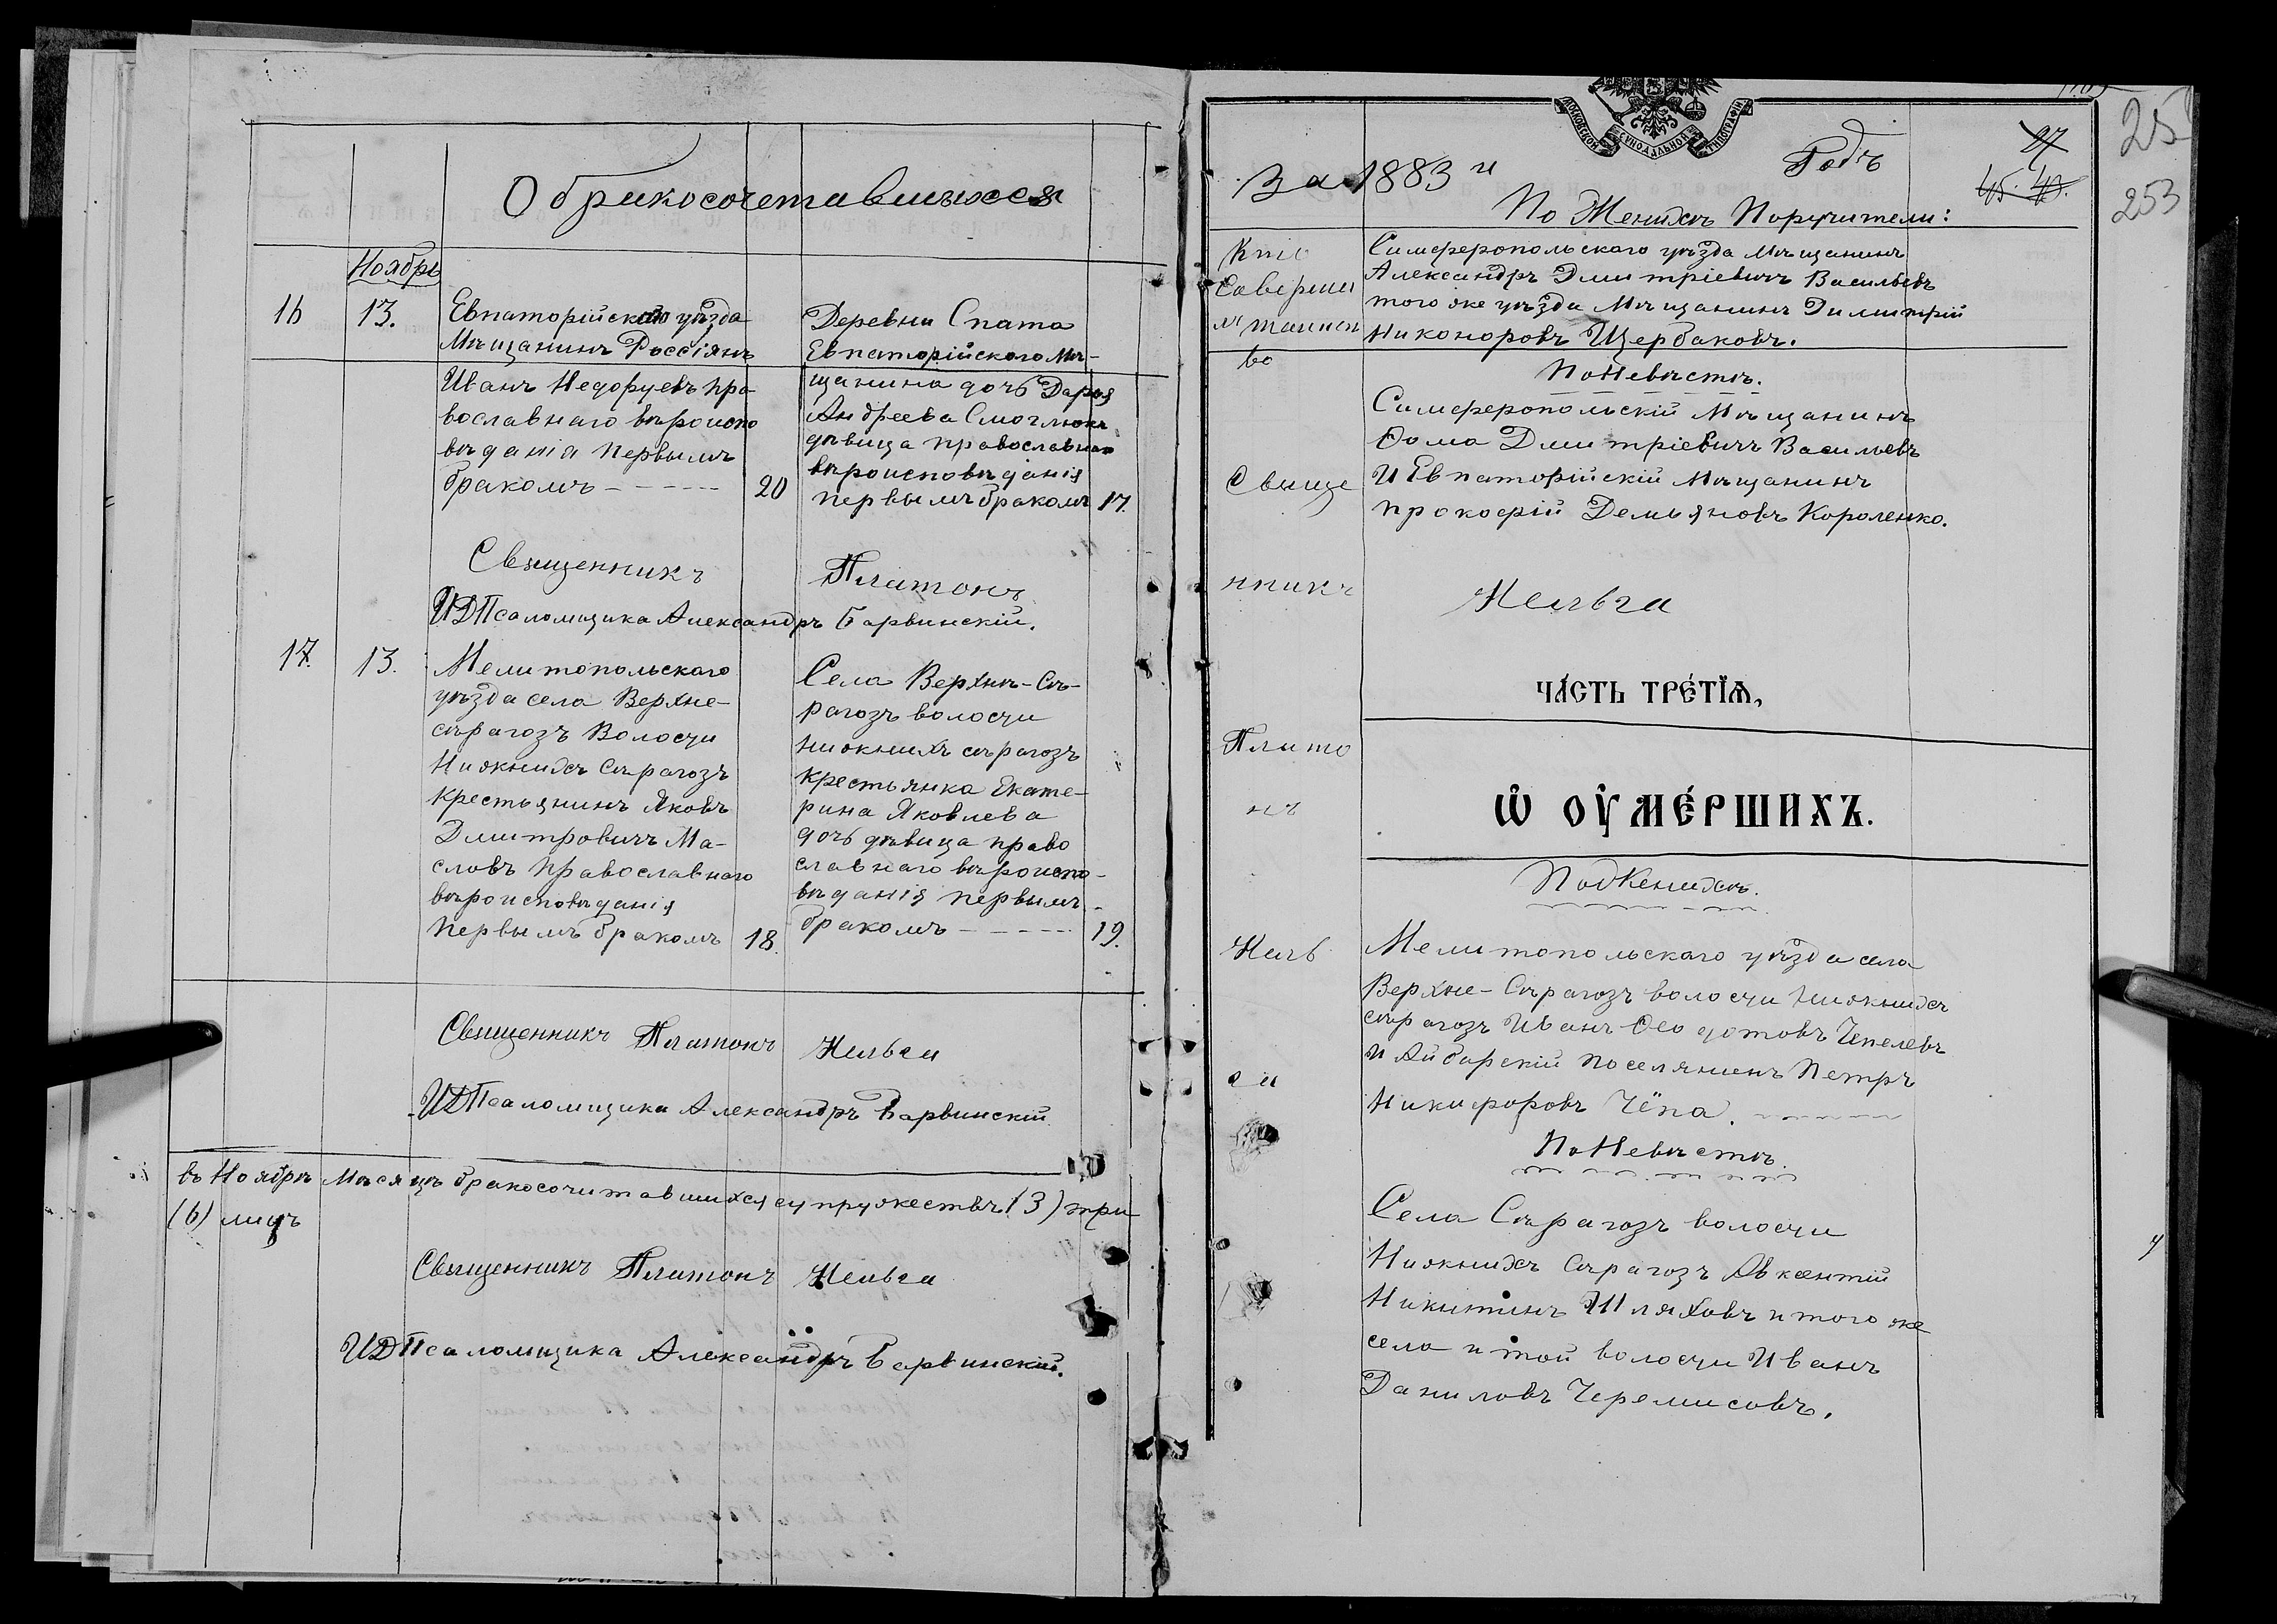 О бракосочетавшихся
Ноябрь
16
13.
Евпаторійского уѣзда
Мѣщанинъ Россіянъ
Иванъ Недоруевъ пра-
вославнаго вѣроиспо
вѣданія первымъ
бракомъ
20
Деревни Спата
Евпаторійского Мѣ-
щанина дочь Дарья
Андреева Смоглюкъ
дѣвица православнаго
вѣроисповѣданія
первымъ бракомъ
17.
Священникъ Платонъ
ИДПсаломщика Александръ Барвинскій.
17.
13.
Мелитопольскаго
уѣзда села Верхне-
сѣрагозъ Волости
Нижнихъ Сѣрагозъ
крестьянинъ Яковъ
Дмитровичъ Ма-
словъ православнаго
вѣроисповѣданія
первымъ бракомъ
18.
Села Верхнѣ-Сѣ-
рагозъ волости
нижнихъ сѣрагозъ
крестьянка Екате-
рина Яковлева
дочь дѣвица право
славнаго вѣроиспо-
вѣданія первымъ
бракомъ
19.
Священникъ Платонъ
ИДПсаломщика Александръ Барвинскій
въ Ноябрѣ Мѣсяцѣ бракосочитавшихся супружествъ (3) три
(6) лицъ
Священникъ Платонъ
ИДПсаломщика Александръ Барвинскій.
МОСКОВСКОЙ СИНОДАЛЬНОЙ ТИПОГРАФІИ
За 1883 й Годъ
27
45. 43.
25
253
По Женихѣ Поручители:
Кто
Соверша
лъ таинст
во
Симферопольскаго уѣзда Мѣщанинъ
Александръ Дмитріевичъ Васильевъ
того же уѣзда Мѣщанинъ Димитрій
Никоноровъ Щербаковъ.
По Невѣстѣ.
Симферопольскій Мѣщанинъ
Ѳома Дмитріевичъ Васильевъ
И Евпаторійскій Мѣщанинъ
прокофій Демьяновъ Короленко.
Свяще
нникъ
ЧА́СТЬ ТРЕ́ТЇѦ,
Плато
нъ
Ѽ ОУ҆МЕ́РШИХЪ.
По Женихѣ.
Мелитопольскаго уѣзда села
Верхне-Сѣрагозъ волости Нижнихъ
сѣрагозъ Иванъ Ѳеодотовъ Чепелевъ
и Айбарскій поселянинъ Петръ
Никифоровъ Чёпа.
По Невѣстѣ.
Села Сѣрагозъ волости
Нижнихъ Сѣрагозъ Авксентій
Никитинъ Шляховъ и того же
села и той волости Иванъ
Даниловъ Черемисовъ.